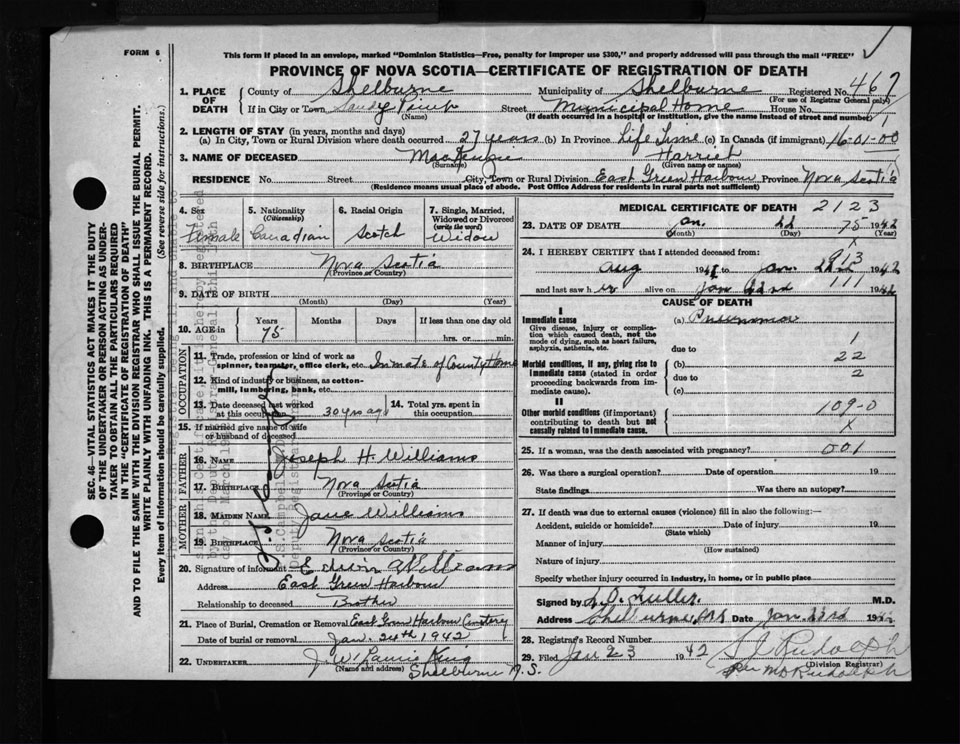 FORM 6
This form if placed in an envelope, marked "Dominion Statistics—Free, penalty for improper use $300," and properly addressed will pass through the mail "FREE"
PROVINCE OF NOVA SCOTIA—CERTIFICATE OF REGISTRATION OF DEATH
SEC. 46—VITAL STATISTICS ACT MAKES IT THE DUTY
OF THE UNDERTAKER OR PERSON ACTING AS UNDER-
TAKER TO OBTAIN ALL THE PARTICULARS REQUIRED
IN THE "CERTIFICATE OF REGISTRATION OF DEATH"
AND TO FILE THE SAME WITH THE DIVISION REGISTRAR WHO SHALL ISSUE THE BURIAL PERMIT.
WRITE PLAINLY WITH UNFADING INK. THIS IS A PERMANENT RECORD.
Every item of Information should be carefully supplied. (See reverse side for instructions.)
1. PLACE OF DEATH
County of Shelburne Municipality of Shelburne Registered No. 467
(For use of Registrar General only)
If in City or Town Sandy Point Street Municipal Home House No.
(Name) (If death occurred in a hospital or institution, give the name instead of street and number)
2. LENGTH OF STAY (in years, months and days)
(a) In City, Town or Rural Division where death occurred 27 years (b) In Province Life Time (c) In Canada (if immigrant) 16-01-00
3. NAME OF DECEASED MacKenzie Harriet
(Surname) (Given name or names)
RESIDENCE No. Street City, Town or Rural Division East Green Harbour Province Nova Scotia
(Residence means usual place of abode. Post Office Address for residents in rural parts not sufficient)
4. Sex Female
5. Nationality (Citizenship) Canadian
6. Racial Origin Scotch
7. Single, Married, Widowed or Divorced (write the word) Widow
8. BIRTHPLACE Nova Scotia
(Province or Country)
9. DATE OF BIRTH
(Month) (Day) (Year)
10. AGE in Years 75 Months Days If less than one day old
hrs. or min.
OCCUPATION
11. Trade, profession or kind of work as spinner, teamster, office clerk, etc. Inmate of County Home
12. Kind of industry or business, as cotton-mill, lumbering, bank, etc.
13. Date deceased last worked at this occupation 30 yrs ago
14. Total yrs. spent in this occupation
15. If married give name of wife or husband of deceased
FATHER
16. Name Joseph H. Williams
17. Birthplace Nova Scotia
(Province or Country)
MOTHER
18. Maiden Name Jane Williams
19. Birthplace Nova Scotia
(Province or Country)
20. Signature of informant Edwin Williams
Address East Green Harbour
Relationship to deceased Brother
21. Place of Burial, Cremation or Removal East Green Harbour Cemetery
Date of burial or removal Jan. 24th 1942
22. UNDERTAKER
(Name and address) Shelburne N.S.
MEDICAL CERTIFICATE OF DEATH 2123
23. DATE OF DEATH 75 1942
(Month) (Day) (Year)
24. I HEREBY CERTIFY that I attended deceased from:
Aug 1941 to Jan. 22nd 1942
913
and last saw her alive on Jan 22nd 1942
111
CAUSE OF DEATH
I
Immediate cause (a) Pneumonia
Give disease, injury or complication which caused death, not the mode of dying, such as heart failure, asphyxia, asthenia, etc.
due to 1
Morbid conditions, if any, giving rise to immediate cause (stated in order proceeding backwards from immediate cause).
(b) 22
due to 2
(c)
II
Other morbid conditions (if important) contributing to death but not causally related to immediate cause.
109-0
X
25. If a woman, was the death associated with pregnancy? 001
26. Was there a surgical operation? Date of operation 19
State findings Was there an autopsy?
27. If death was due to external causes (violence) fill in also the following:—
Accident, suicide or homicide? Date of injury 19
(State which)
Manner of injury
(How sustained)
Nature of injury
Specify whether injury occurred in industry, in home, or in public place
Signed by M.D.
Address Shelburne NS Date Jan 23rd 1942
28. Registrar's Record Number
29. Filed Jan 23 1942
(Division Registrar)
per M D Rudolph